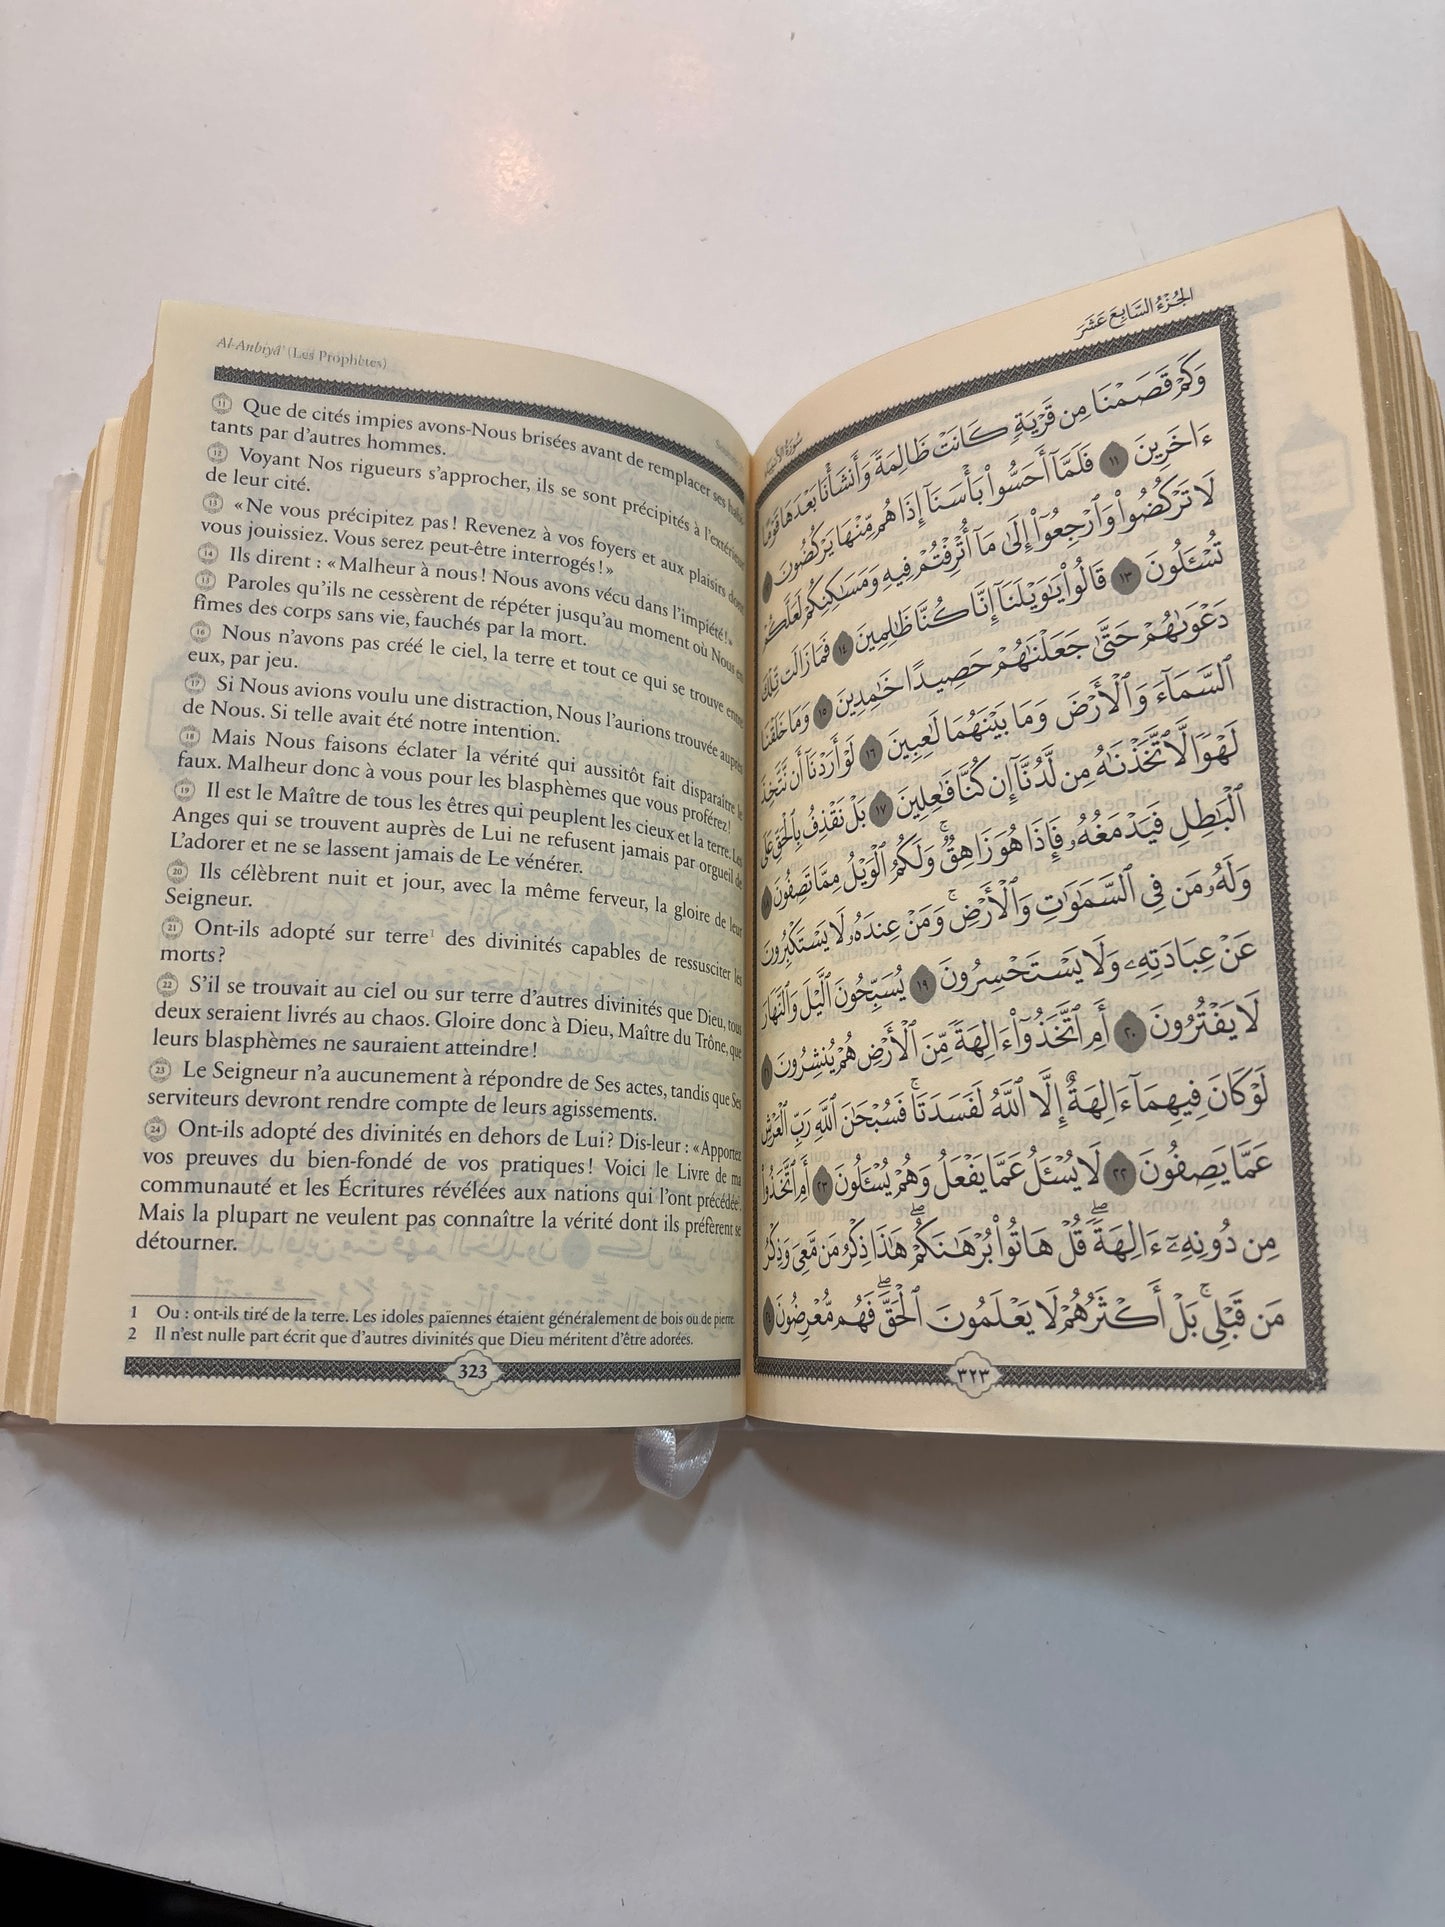 Al-Anbiyâ' (Les Prophètes)
11 Que de cités impies avons-Nous brisées avant de remplacer ses habi-
tants par d'autres hommes.
12 Voyant Nos rigueurs s'approcher, ils se sont précipités à l'extérieur
de leur cité.
13 «Ne vous précipitez pas! Revenez à vos foyers et aux plaisirs dont
vous jouissiez. Vous serez peut-être interrogés!»
14 Ils dirent : «Malheur à nous! Nous avons vécu dans l'impiété!»
15 Paroles qu'ils ne cessèrent de répéter jusqu'au moment où Nous en
fîmes des corps sans vie, fauchés par la mort.
16 Nous n'avons pas créé le ciel, la terre et tout ce qui se trouve entre
eux, par jeu.
17 Si Nous avions voulu une distraction, Nous l'aurions trouvée auprès
de Nous. Si telle avait été notre intention.
18 Mais Nous faisons éclater la vérité qui aussitôt fait disparaître le
faux. Malheur donc à vous pour les blasphèmes que vous proférez!
19 Il est le Maître de tous les êtres qui peuplent les cieux et la terre. Les
Anges qui se trouvent auprès de Lui ne refusent jamais par orgueil de
L'adorer et ne se lassent jamais de Le vénérer.
20 Ils célèbrent nuit et jour, avec la même ferveur, la gloire de leur
Seigneur.
21 Ont-ils adopté sur terre¹ des divinités capables de ressusciter les
morts?
22 S'il se trouvait au ciel ou sur terre d'autres divinités que Dieu, tous
deux seraient livrés au chaos. Gloire donc à Dieu, Maître du Trône, que
leurs blasphèmes ne sauraient atteindre!
23 Le Seigneur n'a aucunement à répondre de Ses actes, tandis que Ses
serviteurs devront rendre compte de leurs agissements.
24 Ont-ils adopté des divinités en dehors de Lui? Dis-leur : «Apportez
vos preuves du bien-fondé de vos pratiques! Voici le Livre de ma
communauté et les Écritures révélées aux nations qui l'ont précédée².
Mais la plupart ne veulent pas connaître la vérité dont ils préfèrent se
détourner.
1 Ou : ont-ils tiré de la terre. Les idoles païennes étaient généralement de bois ou de pierre.
2 Il n'est nulle part écrit que d'autres divinités que Dieu méritent d'être adorées.
323
الجُزْءُ السَّابِعَ عَشَرَ
سُورَةُ الأَنبِيَاء
وَكَمْ قَصَمْنَا مِن قَرْيَةٍ كَانَتْ ظَالِمَةً وَأَنشَأْنَا بَعْدَهَا قَوْمًا
ءَاخَرِينَ ١١ فَلَمَّآ أَحَسُّواْ بَأْسَنَآ إِذَا هُم مِّنْهَا يَرْكُضُونَ ١٢
لَا تَرْكُضُواْ وَٱرْجِعُوٓاْ إِلَىٰ مَآ أُتْرِفْتُمْ فِيهِ وَمَسَٰكِنِكُمْ لَعَلَّكُمْ
تُسْـَٔلُونَ ١٣ قَالُواْ يَٰوَيْلَنَآ إِنَّا كُنَّا ظَٰلِمِينَ ١٤ فَمَا زَالَت تِّلْكَ
دَعْوَىٰهُمْ حَتَّىٰ جَعَلْنَٰهُمْ حَصِيدًا خَٰمِدِينَ ١٥ وَمَا خَلَقْنَا
ٱلسَّمَآءَ وَٱلْأَرْضَ وَمَا بَيْنَهُمَا لَٰعِبِينَ ١٦ لَوْ أَرَدْنَآ أَن نَّتَّخِذَ
لَهْوًا لَّٱتَّخَذْنَٰهُ مِن لَّدُنَّآ إِن كُنَّا فَٰعِلِينَ ١٧ بَلْ نَقْذِفُ بِٱلْحَقِّ عَلَى
ٱلْبَٰطِلِ فَيَدْمَغُهُۥ فَإِذَا هُوَ زَاهِقٌ ۚ وَلَكُمُ ٱلْوَيْلُ مِمَّا تَصِفُونَ ١٨
وَلَهُۥ مَن فِى ٱلسَّمَٰوَٰتِ وَٱلْأَرْضِ ۚ وَمَنْ عِندَهُۥ لَا يَسْتَكْبِرُونَ
عَنْ عِبَادَتِهِۦ وَلَا يَسْتَحْسِرُونَ ١٩ يُسَبِّحُونَ ٱلَّيْلَ وَٱلنَّهَارَ
لَا يَفْتُرُونَ ٢٠ أَمِ ٱتَّخَذُوٓاْ ءَالِهَةً مِّنَ ٱلْأَرْضِ هُمْ يُنشِرُونَ ٢١
لَوْ كَانَ فِيهِمَآ ءَالِهَةٌ إِلَّا ٱللَّهُ لَفَسَدَتَا ۚ فَسُبْحَٰنَ ٱللَّهِ رَبِّ ٱلْعَرْشِ
عَمَّا يَصِفُونَ ٢٢ لَا يُسْـَٔلُ عَمَّا يَفْعَلُ وَهُمْ يُسْـَٔلُونَ ٢٣ أَمِ ٱتَّخَذُواْ
مِن دُونِهِۦٓ ءَالِهَةً ۖ قُلْ هَاتُواْ بُرْهَٰنَكُمْ ۖ هَٰذَا ذِكْرُ مَن مَّعِىَ وَذِكْرُ
مَن قَبْلِى ۚ بَلْ أَكْثَرُهُمْ لَا يَعْلَمُونَ ٱلْحَقَّ ۖ فَهُم مُّعْرِضُونَ ٢٤
٣٢٣